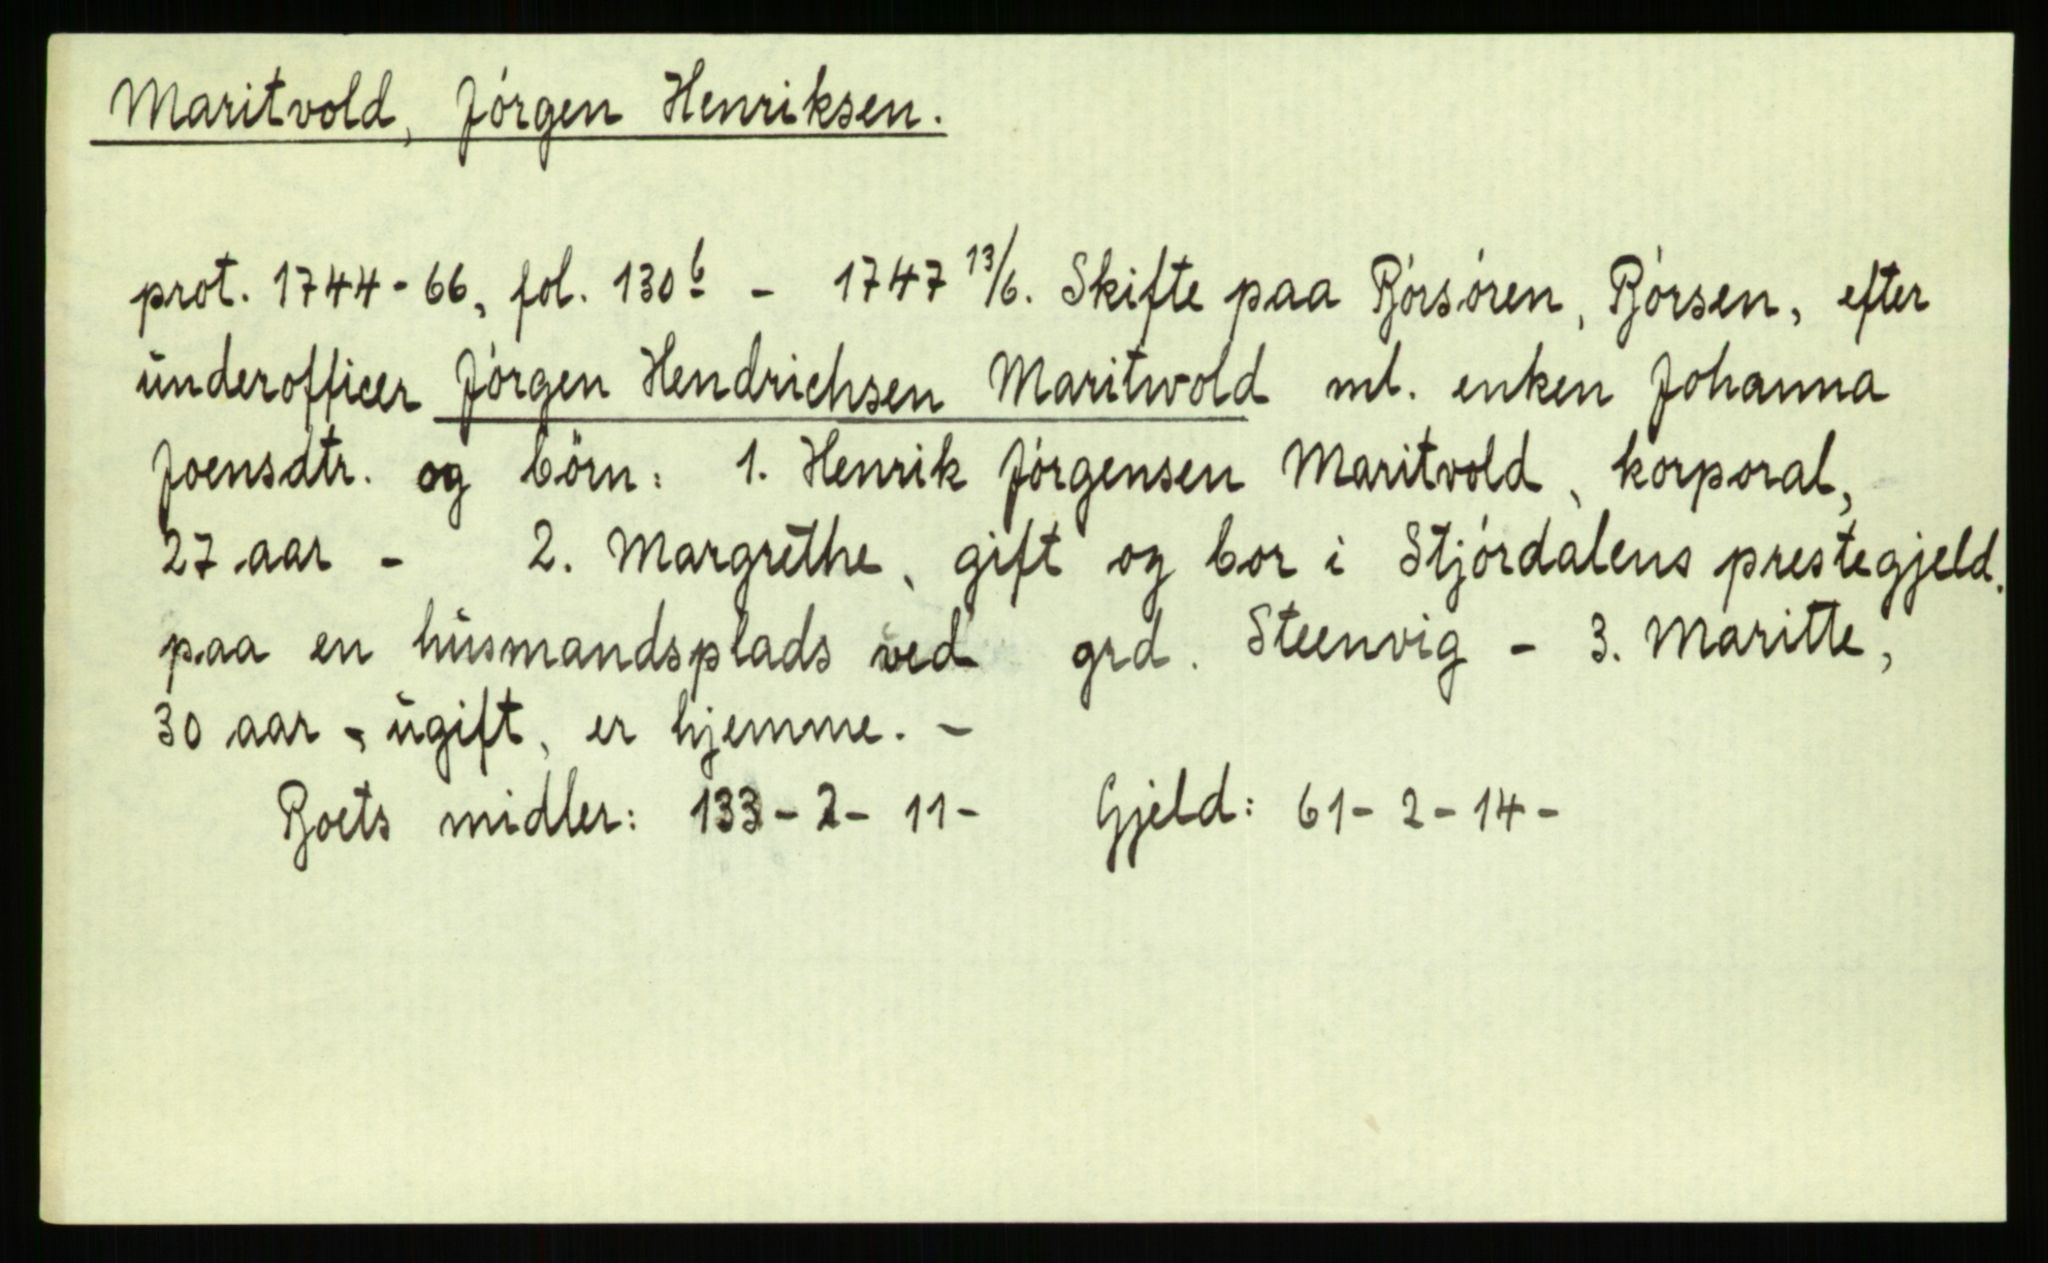 Maritvold, Jórgen Henriksen.
prot. 1744-66, fol. 130 b - 1747 13/6. Skifte paa Börsören, Börsen, efter
underofficer Jórgen Hendrichsen Maritwold ml. enken Johanna
Joensdtr. og börn: 1. Henrik Jórgensen Maritvold, korporal,
27 aar - 2. Margrethe, gift og bor i Stjórdalens prestegjeld.
paa en husmandsplads ved grd. Steenvig - 3. Maritte,
30 aar, ugift, er hjemme. -
Boets midler: 133-2-11- Gjeld: 61-2-14-